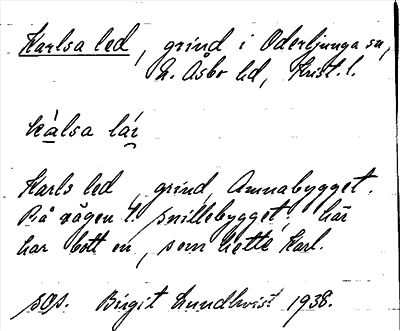 Karlsa led, grind i Oderljunga sn,
N. Åsbo hd, Krist. l.
kálsa lár
Karls led, grind, Annabygget.
På vägen t. Snillebygget; här
har bott en, som hette Karl.
sqs. Birgit Lundkvist 1938.